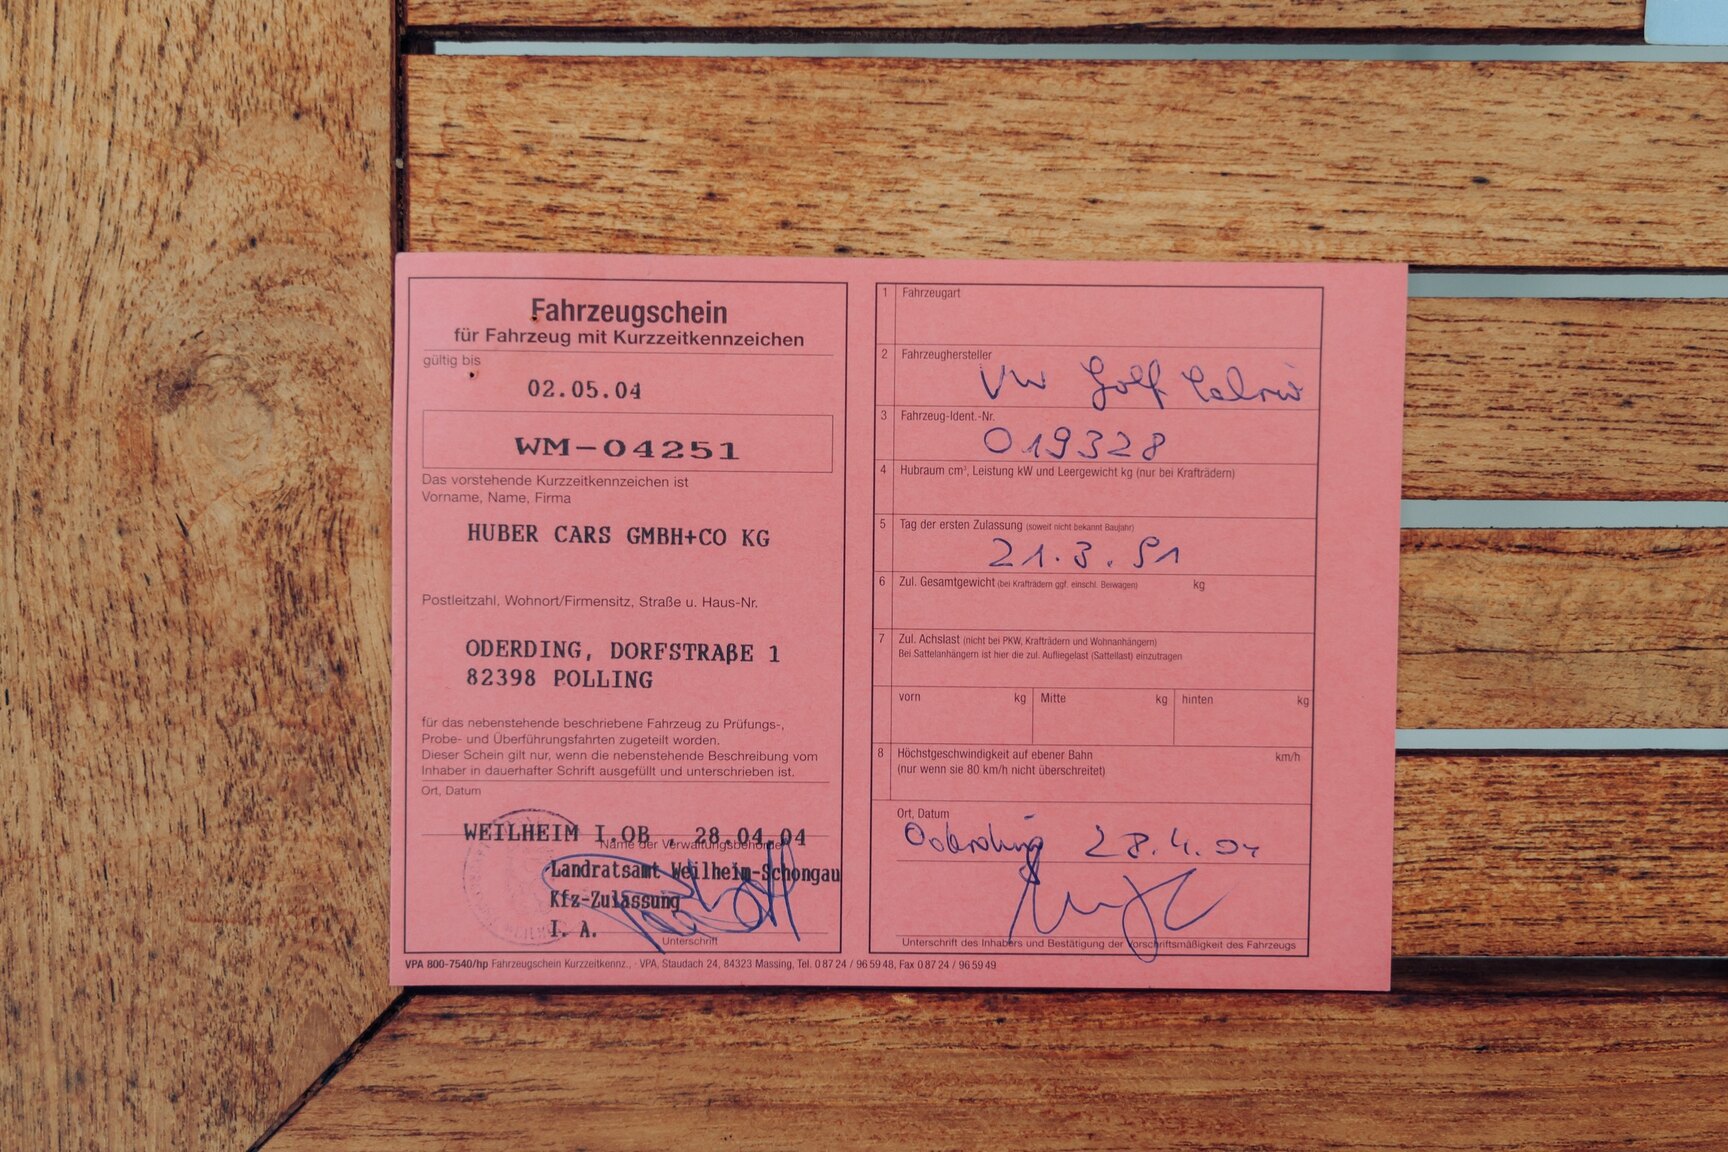 Fahrzeugschein
für Fahrzeug mit Kurzzeitkennzeichen
gültig bis
02.05.04
WM-04251
Das vorstehende Kurzzeitkennzeichen ist
Vorname, Name, Firma
HUBER CARS GMBH+CO KG
Postleitzahl, Wohnort/Firmensitz, Straße u. Haus-Nr.
ODERDING, DORFSTRAßE 1
82398 POLLING
für das nebenstehende beschriebene Fahrzeug zu Prüfungs-,
Probe- und Überführungsfahrten zugeteilt worden.
Dieser Schein gilt nur, wenn die nebenstehende Beschreibung vom
Inhaber in dauerhafter Schrift ausgefüllt und unterschrieben ist.
Ort, Datum
WEILHEIM I.OB , 28.04.04
Name der Verwaltungsbehörde
Landratsamt Weilheim-Schongau
Kfz-Zulassung
I. A.
Unterschrift
VPA 800-7540/hp Fahrzeugschein Kurzzeitkennz., · VPA, Staudach 24, 84323 Massing, Tel. 0 87 24 / 96 59 48, Fax 0 87 24 / 96 59 49
1 Fahrzeugart
2 Fahrzeughersteller
VW Golf Cabrio
3 Fahrzeug-Ident.-Nr.
019328
4 Hubraum cm³, Leistung kW und Leergewicht kg (nur bei Krafträdern)
5 Tag der ersten Zulassung (soweit nicht bekannt Baujahr)
21.3.91
6 Zul. Gesamtgewicht (bei Krafträdern ggf. einschl. Beiwagen) kg
7 Zul. Achslast (nicht bei PKW, Krafträdern und Wohnanhängern)
Bei Sattelanhängern ist hier die zul. Aufliegelast (Sattellast) einzutragen
vorn kg Mitte kg hinten kg
8 Höchstgeschwindigkeit auf ebener Bahn km/h
(nur wenn sie 80 km/h nicht überschreitet)
Ort, Datum
Oderding 28.4.04
Unterschrift des Inhabers und Bestätigung der Vorschriftsmäßigkeit des Fahrzeugs